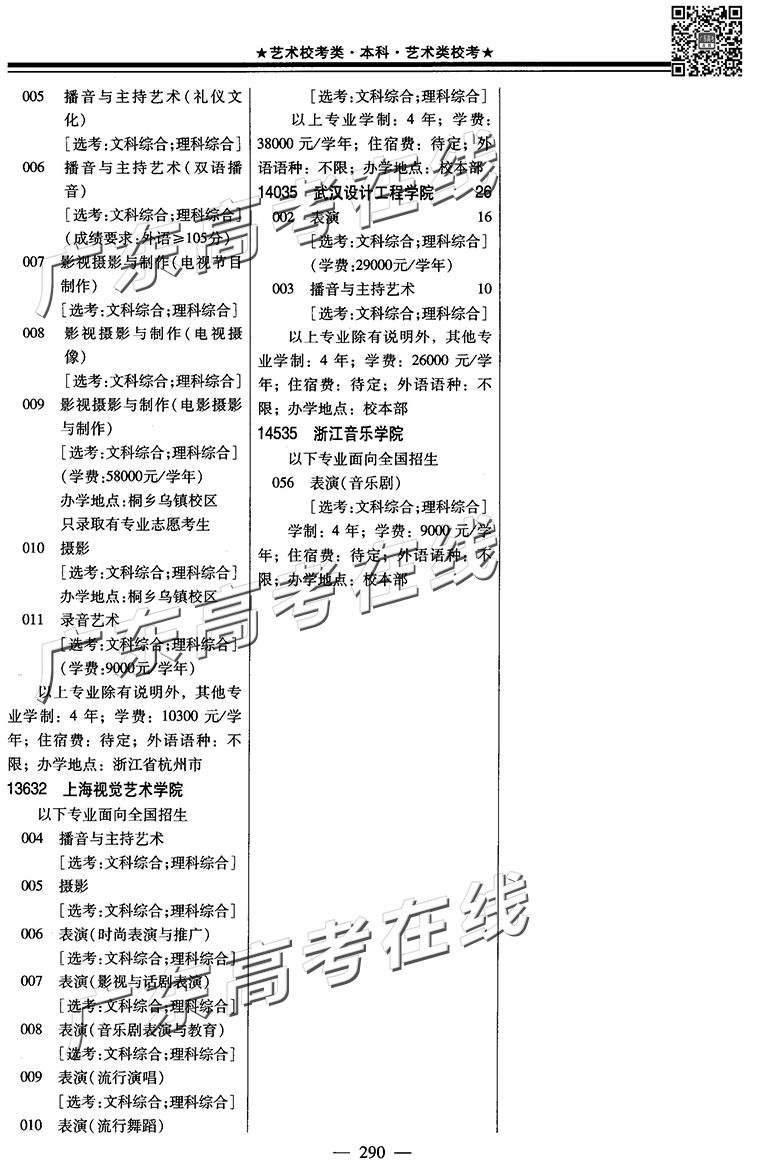 ★艺术校考类·本科·艺术类校考★
005 播音与主持艺术(礼仪文
化)
[选考:文科综合;理科综合]
006 播音与主持艺术(双语播
音)
[选考:文科综合;理科综合]
(成绩要求:外语≥105分)
007 影视摄影与制作(电视节目
制作)
[选考:文科综合;理科综合]
008 影视摄影与制作(电视摄
像)
[选考:文科综合;理科综合]
009 影视摄影与制作(电影摄影
与制作)
[选考:文科综合;理科综合]
(学费:58000元/学年)
办学地点:桐乡乌镇校区
只录取有专业志愿考生
010 摄影
[选考:文科综合;理科综合]
办学地点:桐乡乌镇校区
011 录音艺术
[选考:文科综合;理科综合]
(学费:9000元/学年)
以上专业除有说明外，其他专
业学制: 4 年; 学费: 10300 元/学
年; 住宿费: 待定; 外语语种: 不
限; 办学地点: 浙江省杭州市
13632 上海视觉艺术学院
以下专业面向全国招生
004 播音与主持艺术
[选考:文科综合;理科综合]
005 摄影
[选考:文科综合;理科综合]
006 表演(时尚表演与推广)
[选考:文科综合;理科综合]
007 表演(影视与话剧表演)
[选考:文科综合;理科综合]
008 表演(音乐剧表演与教育)
[选考:文科综合;理科综合]
009 表演(流行演唱)
[选考:文科综合;理科综合]
010 表演(流行舞蹈)
[选考:文科综合;理科综合]
以上专业学制: 4 年; 学费:
38000 元/学年; 住宿费: 待定; 外
语语种: 不限; 办学地点: 校本部
14035 武汉设计工程学院 26
002 表演 16
[选考:文科综合;理科综合]
(学费:29000元/学年)
003 播音与主持艺术 10
[选考:文科综合;理科综合]
以上专业除有说明外，其他专
业学制: 4 年; 学费: 26000 元/学
年; 住宿费: 待定; 外语语种: 不
限; 办学地点: 校本部
14535 浙江音乐学院
以下专业面向全国招生
056 表演(音乐剧)
[选考:文科综合;理科综合]
学制: 4 年; 学费: 9000 元/学
年; 住宿费: 待定; 外语语种: 不
限; 办学地点: 校本部
广东高考在线
广东高考在线
广东高考在线
— 290 —